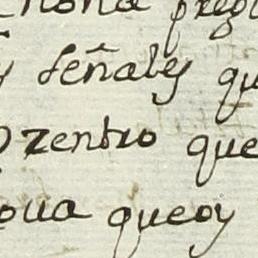 señales qu
zentro que
oua queoy